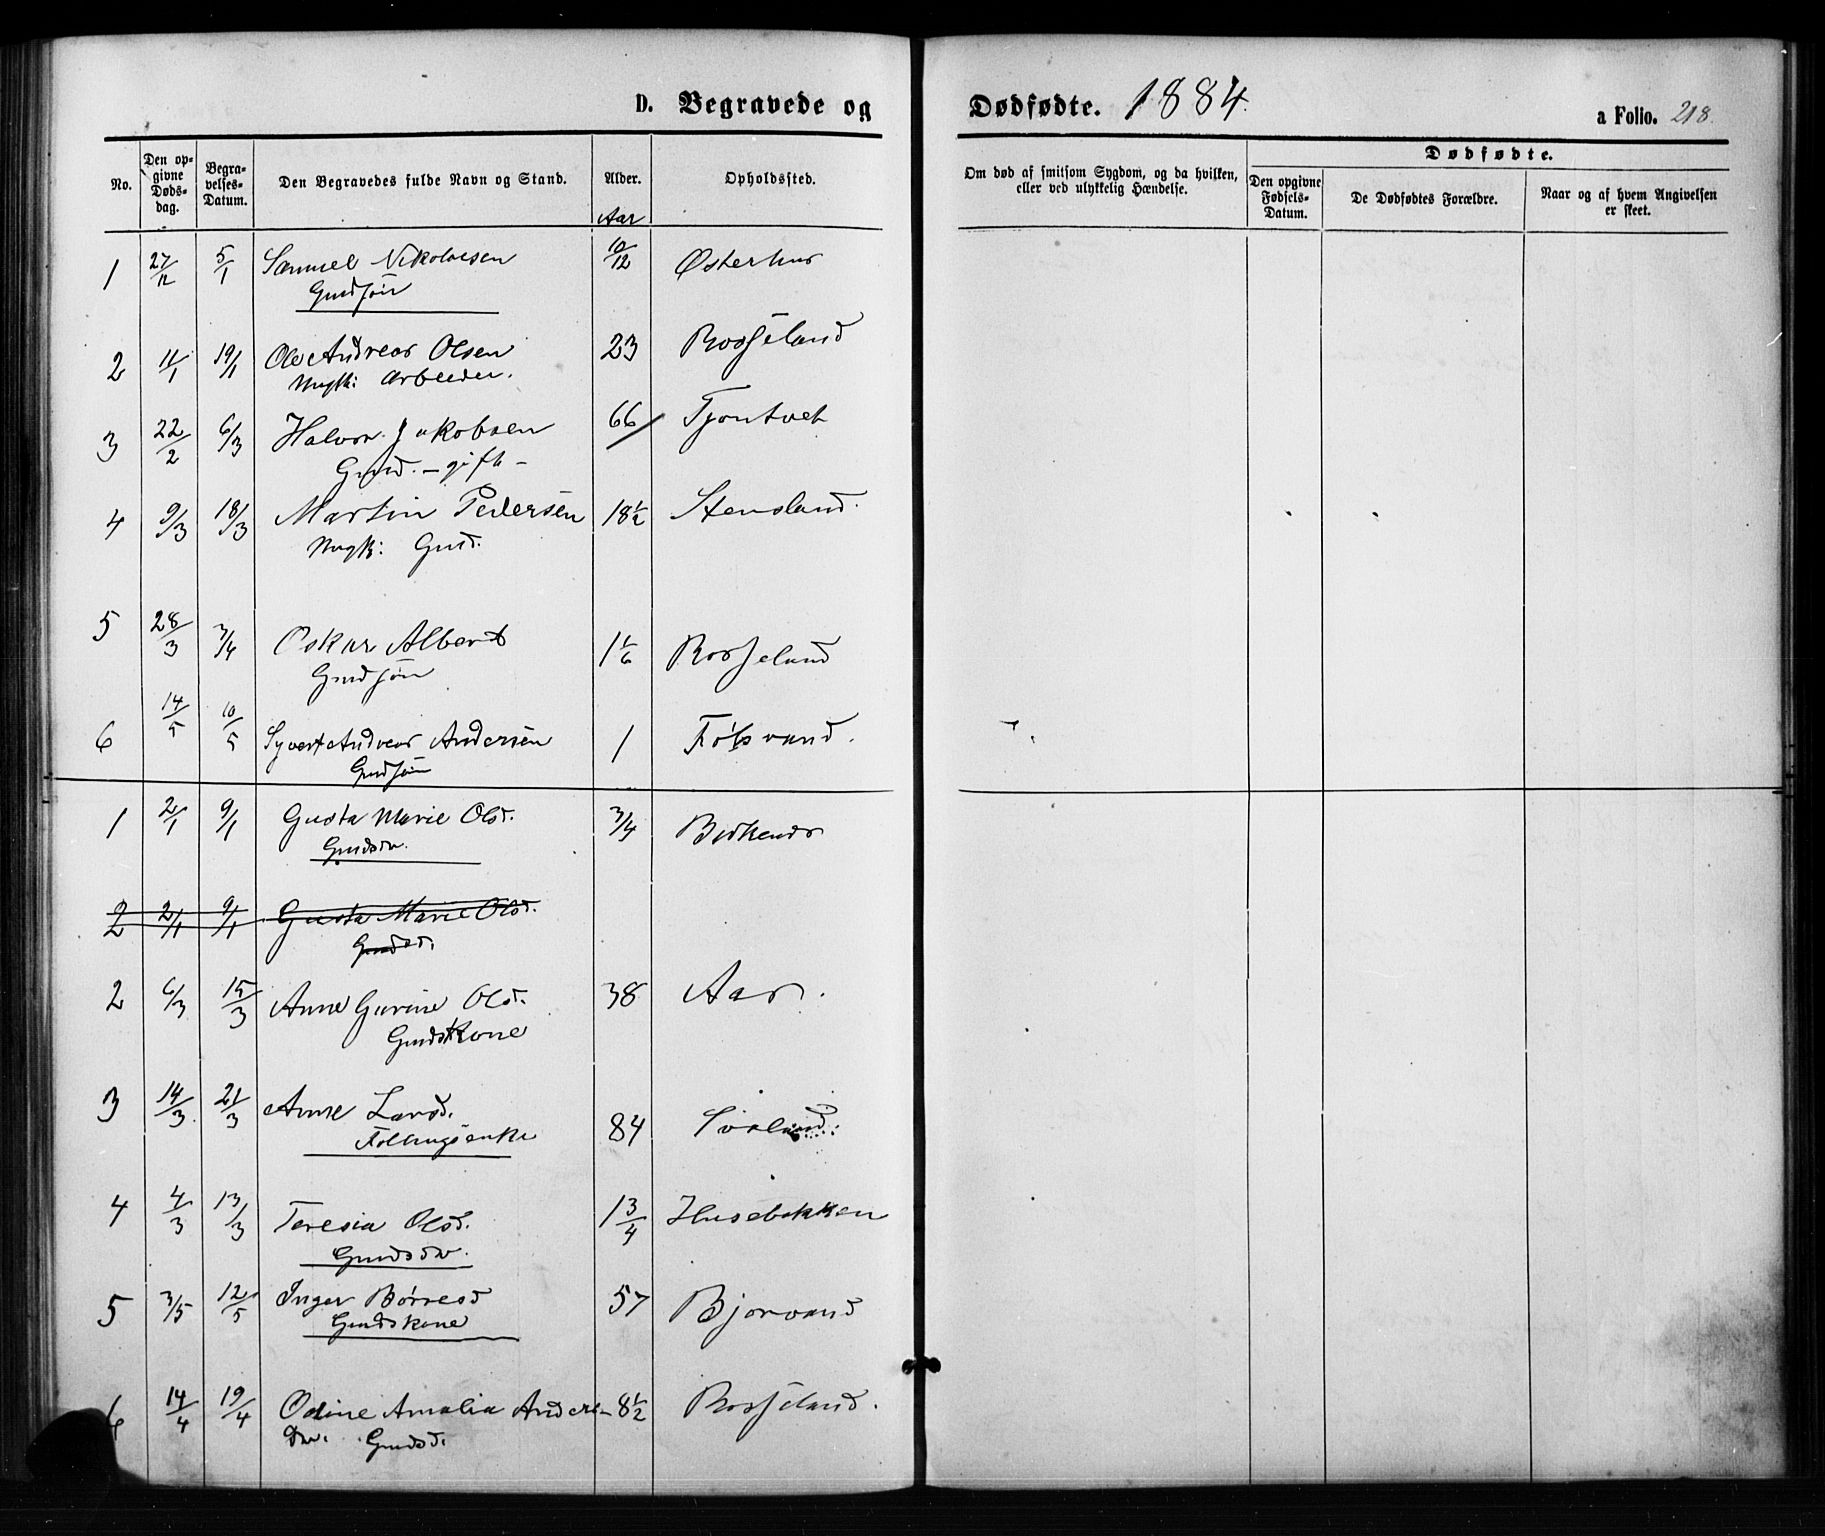 D. Begravede og Dødfødte. 1884.
a Folio. 218.
No. | Den opgivne Dødsdag. | Begravelses-Datum. | Den Begravedes fulde Navn og Stand. | Alder. Aar | Opholdssted. | Om død af smitsom Sygdom, og da hvilken, eller ved ulykkelig Hændelse. | Dødfødte. | Den opgivne Fødsels-Datum. | De Dødfødtes Forældre. | Naar og af hvem Angivelsen er skeet.
1 27/12 5/1 Samuel Nikolaisen 10/12 Østerhus
Gmdsøn
2 11/1 19/1 Ole Andreas Olsen 23 Rosseland
Ungk: Arbeider.
3 22/2 6/3 Halvor Jakobsen 66 Tjontvet
Gmd. - gift -
4 9/3 18/3 Martin Pedersen 18 1/2 Stensland.
Ungk: Gmd.
5 28/3 3/4 Oskar Albert 1 1/6 Rosseland
Gmdsøn
6 14/5 10/5 Syvert Andreas Andersen 1 Folsvand.
Gmdsøn
1 2/1 9/1 Gusta Marie Olsd. 3/4 Birkenes
Gmdsdr.
2 2/1 9/1 Gusta Marie Olsd.
Gmdsd.
2 6/3 15/3 Anne Gurine Olsd. 38 Aas.
Gmdskone
3 14/3 21/3 Anne Larsd. 84 Svaland.
Follugsenke
4 4/3 13/3 Teresia Olsd. 1 3/4 Husebakken
Gmdsdr.
5 3/5 12/5 Inger Børresd 57 Bjorvand
Gmdskone
6 14/4 19/4 Odine Amalia Anders- 8 1/2 Rosseland.
Dr. Gmdsd.